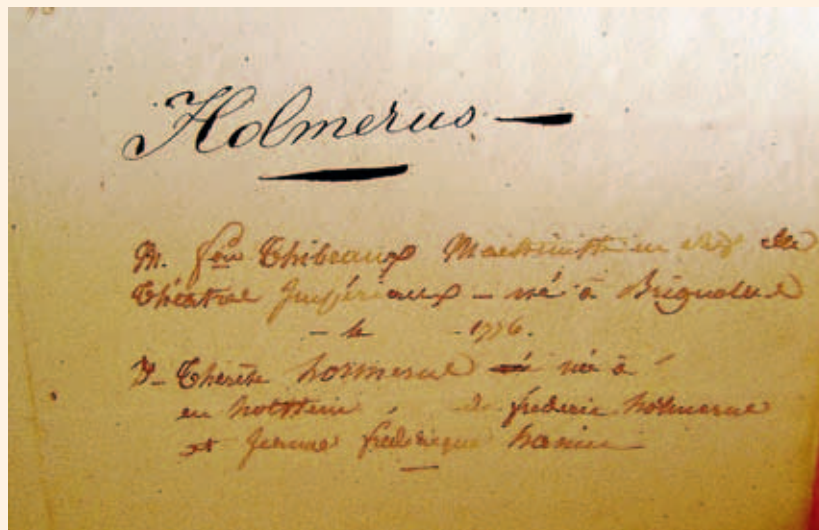 Holmerus —
M. fois Thibeaux Machiniste en chef des
Théatres Impériaux — né à Brignolles
— le 1776.
D. Thérèse hormerus né à
en holstein de frederic holmerus
et jeanne frederique